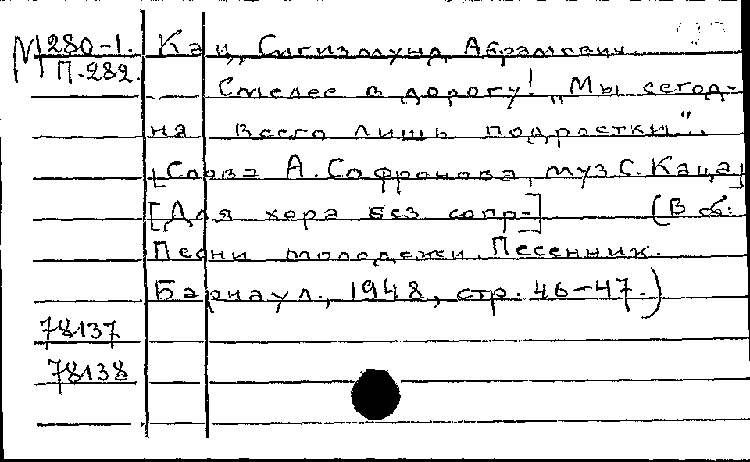 М280-1. Кац, Сигизмунд Абрамович.
П-282.
Смелее в дорогу! „Мы сегод-
на всего лишь подростки".
[Слова А. Софронова, муз С. Каца]
[Для хора без сопр-] (В сб:
Песни молодежи. Песенник.
Барнаул., 1948, стр. 46-47.)
78137
78138